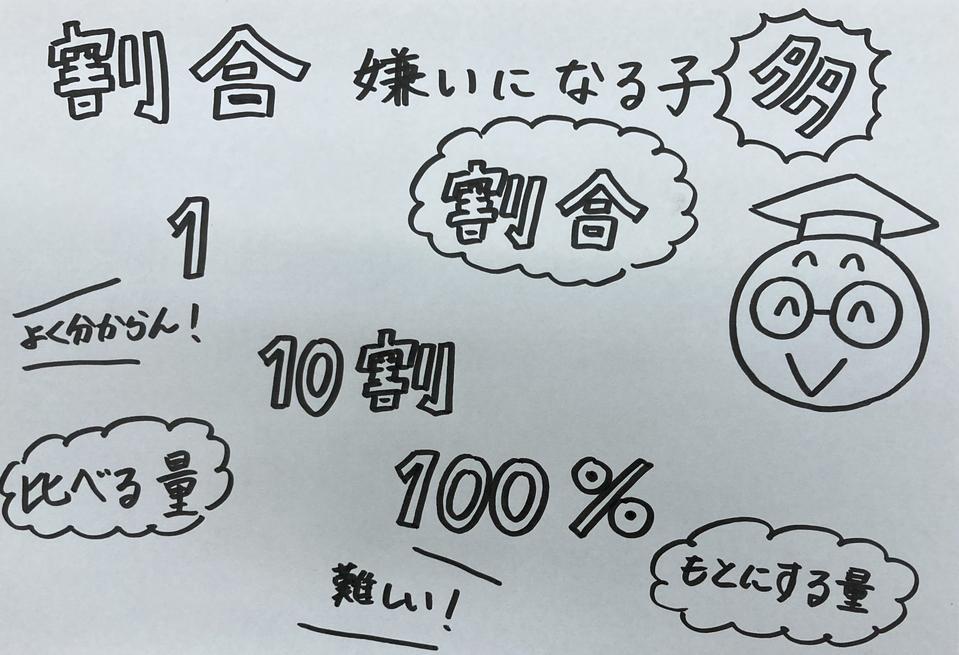 割合 嫌いになる子 多
割合
1
よく分からん!
10割
比べる量
100%
もとにする量
難しい!